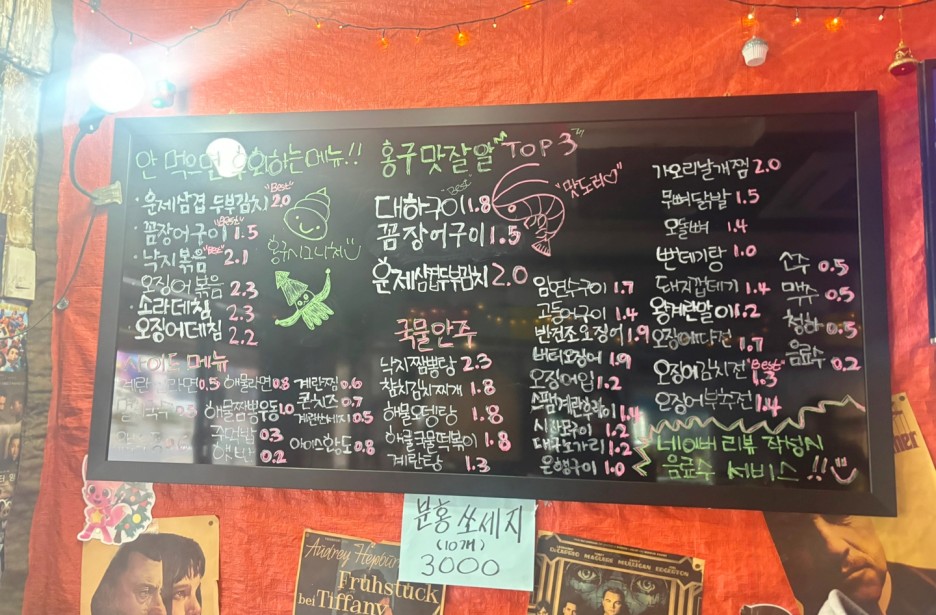 안 먹으면 후회하는메뉴!!
"Best"
·운제삼겹두부김치 2.0
"Best"
·꼼장어구이 1.5
"Best"
·낙지볶음 2.1
오징어볶음 2.3
소라데침 2.3
오징어데침 2.2
사이드 메뉴
0.5 해물라면 0.8 계란찜 0.6
0.5 해물짬뽕우동 1.0 콘치즈 0.7
주먹밥 0.3 0.5
햇반 0.2 아이스황도 0.8
홍구 맛잘알 TOP 3
"Best"
대하구이 1.8
"맛도리♡"
꼼장어구이 1.5
운제삼겹두부김치 2.0
국물안주
낙지짬뽕탕 2.3
참치김치찌개 1.8
해물오뎅탕 1.8
해물국물떡볶이 1.8
계란탕 1.3
임연수구이 1.7
고등어구이 1.4
반건조오징어 1.9
버터오징어 1.9
오징어입 1.2
스팸계란후라이 1.4
시샤모구이 1.2
대구노가리 1.2
은행구이 1.0
가오리날개찜 2.0
무뼈닭발 1.5
오돌뼈 1.4
뻔데기탕 1.0
돼지껍데기 1.4
왕계란말이 1.2
오징어다리전 1.7
"Best"
오징어김치전 1.3
오징어부추전 1.4
소주 0.5
맥주 0.5
청하 0.5
음료수 0.2
네이버 리뷰 작성시
음료수 서비스!!
분홍 쏘세지
(10개)
3000
Audrey Hepburn
Frühstück
bei Tiffany